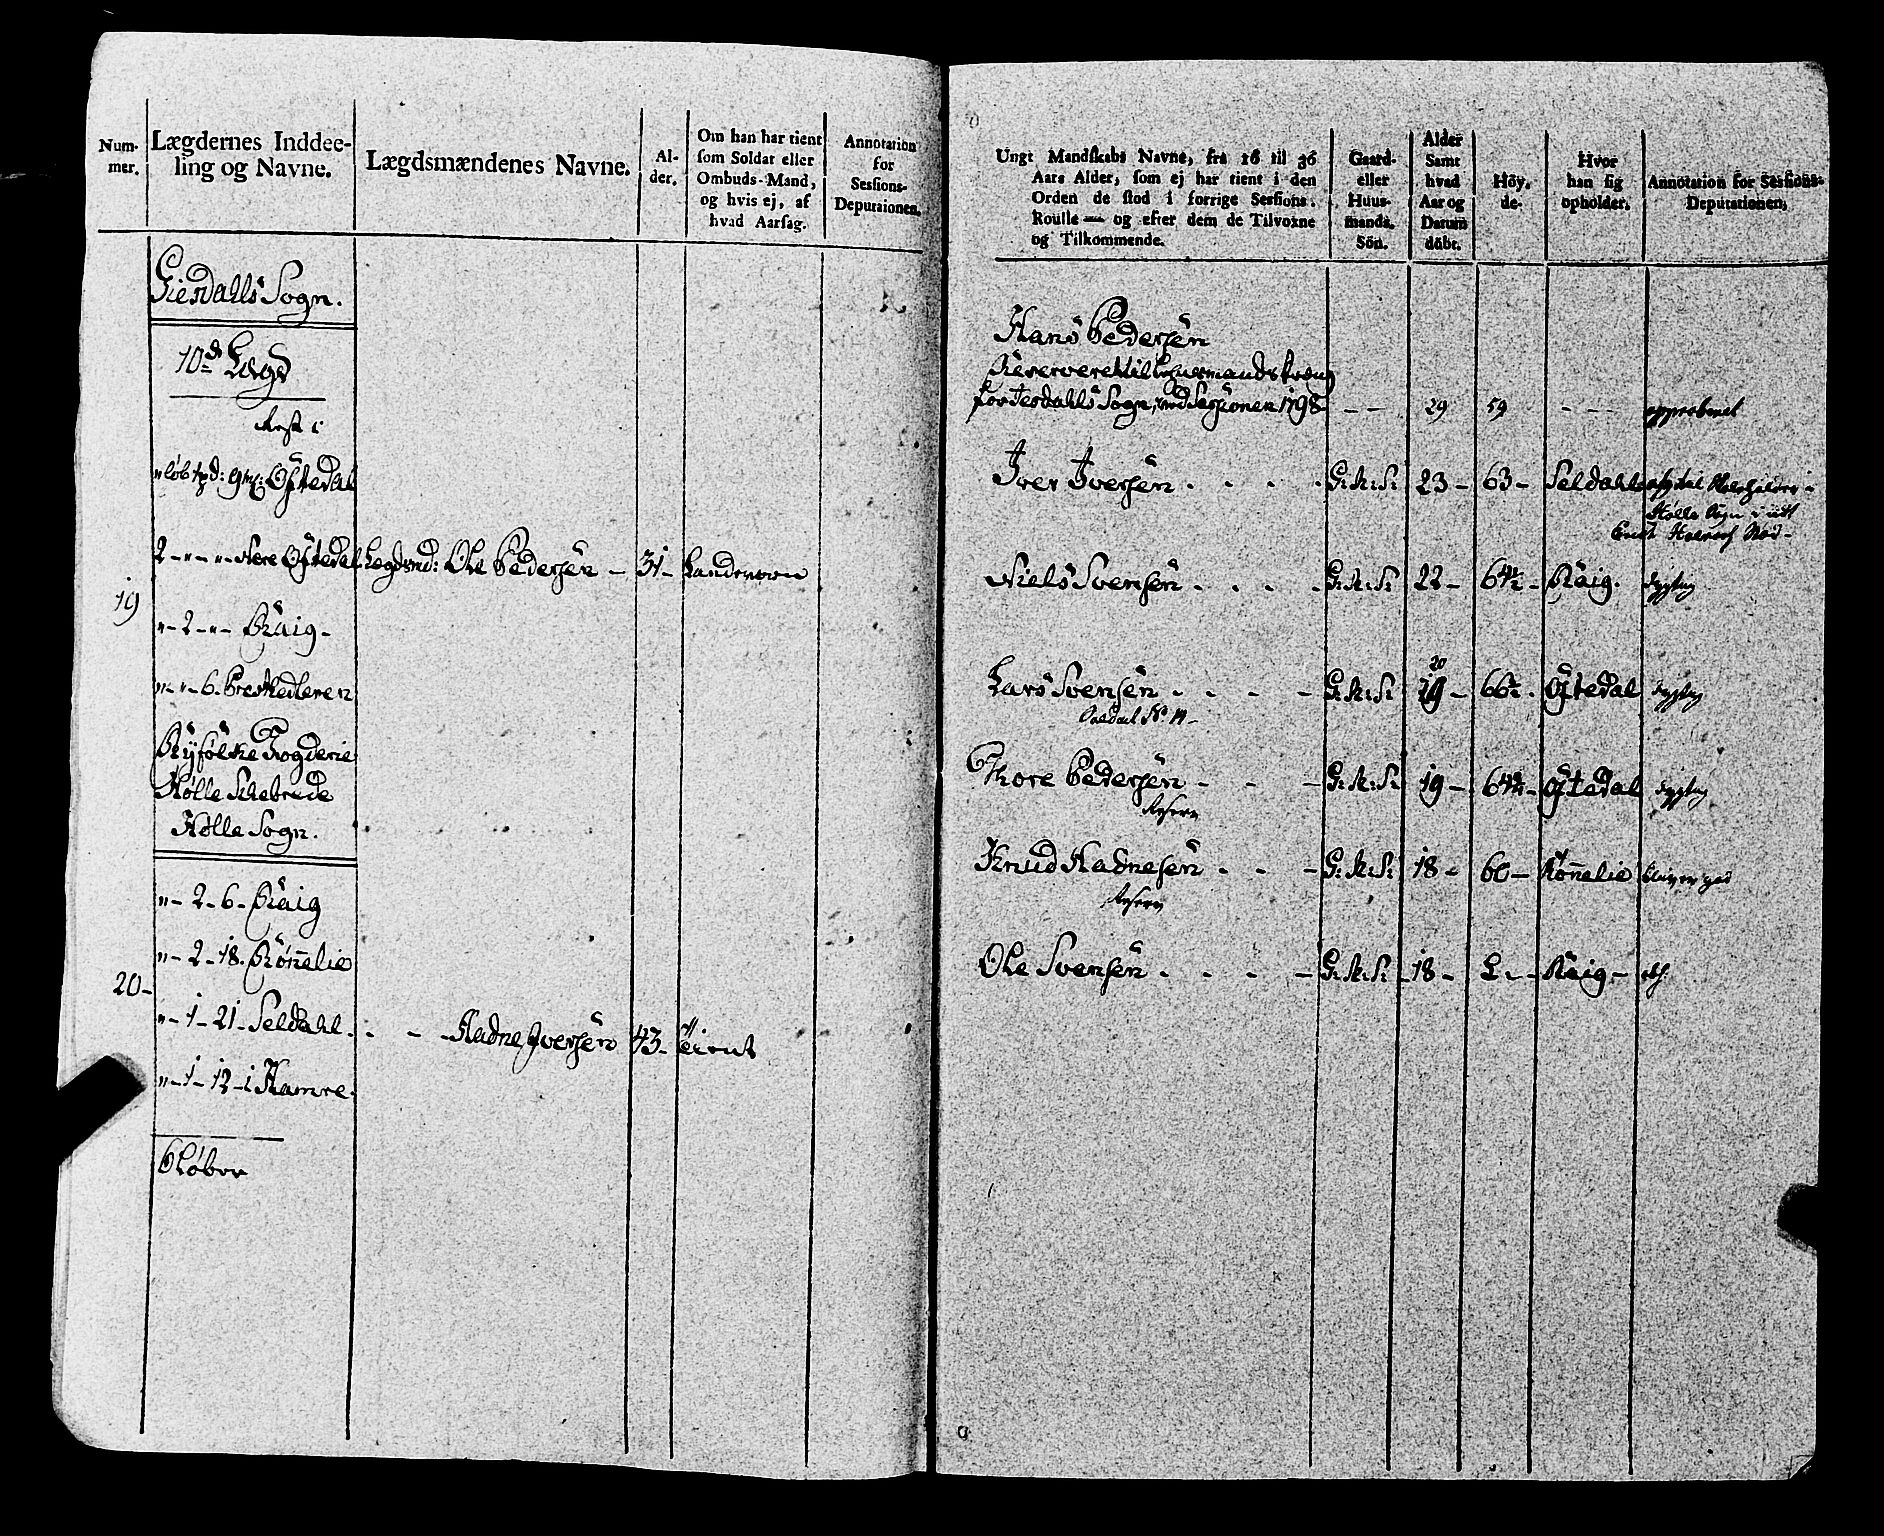 Num-
mer.
Lægdernes Inddee-
ling og Navne.
Lægdsmændenes Navne.
Al-
der.
Om han har tient
som Soldat eller
Ombuds-Mand,
og hvis ej, af
hvad Aarsag.
Annotation
for
Sessions-
Deputaionen.
Giesdahls Sogn.
10de Lægd
Rest i
Øftedal
2 - " - " - Nere Øftedal Lægdsmd: Ole Pedersen - 31 - Landevern
19
" - 2 - " - Räig -
" - " - 6 - Bræchedleren
Ryfølke Fogderie
Hølle Schebrede
Hølle Sogn.
" - 2 - 6 - Räig
" - 2 - 18. Rönnelie
20 -
" - 1 - 21 - Seldahl . - - Hadne Iversen 43 - tient
" - 1 - 12 - i Hamre.
6 Løber
Ungt Mandskabs Navne, fra 16 til 36
Aars Alder, som ej har tient i den
Orden de stod i forrige Sessions-
Roulle — og efter dem de Tilvoxne
og Tilkommende.
Gaard-
eller
Huus-
mands-
Sön.
Alder
Samt
hvad
Aar og
Datum
döbt.
Höy-
de-
Hvor
han sig
opholder.
Annotation for Sessions-
Deputationen,
Hans Pedersen
Reserveret til Lensmands dreng
for Jesdahls Sogn, ved Sessionen 1798 - - - 29 59 - - - approberet
Iver Iversen . . . . G: R: S: 23 - 63 - Seldahl
Hölle Sogn i
Niels Svensen . . . . G: R: S: 22 - 64½ - Räig. dygtig
20
Lars Svensen . . . - G: R: S: 19 - 66½ - Øftedal dygtig
Thore Pedersen - - - G: R: S: 19 - Øftedal dygtig
Reserv
Knud Hadnesen . . - G: R: S: 18 - 60 - Rönnelie
Reserv
Ole Svensen . . . - G: R: S: 18 - L - Räig -